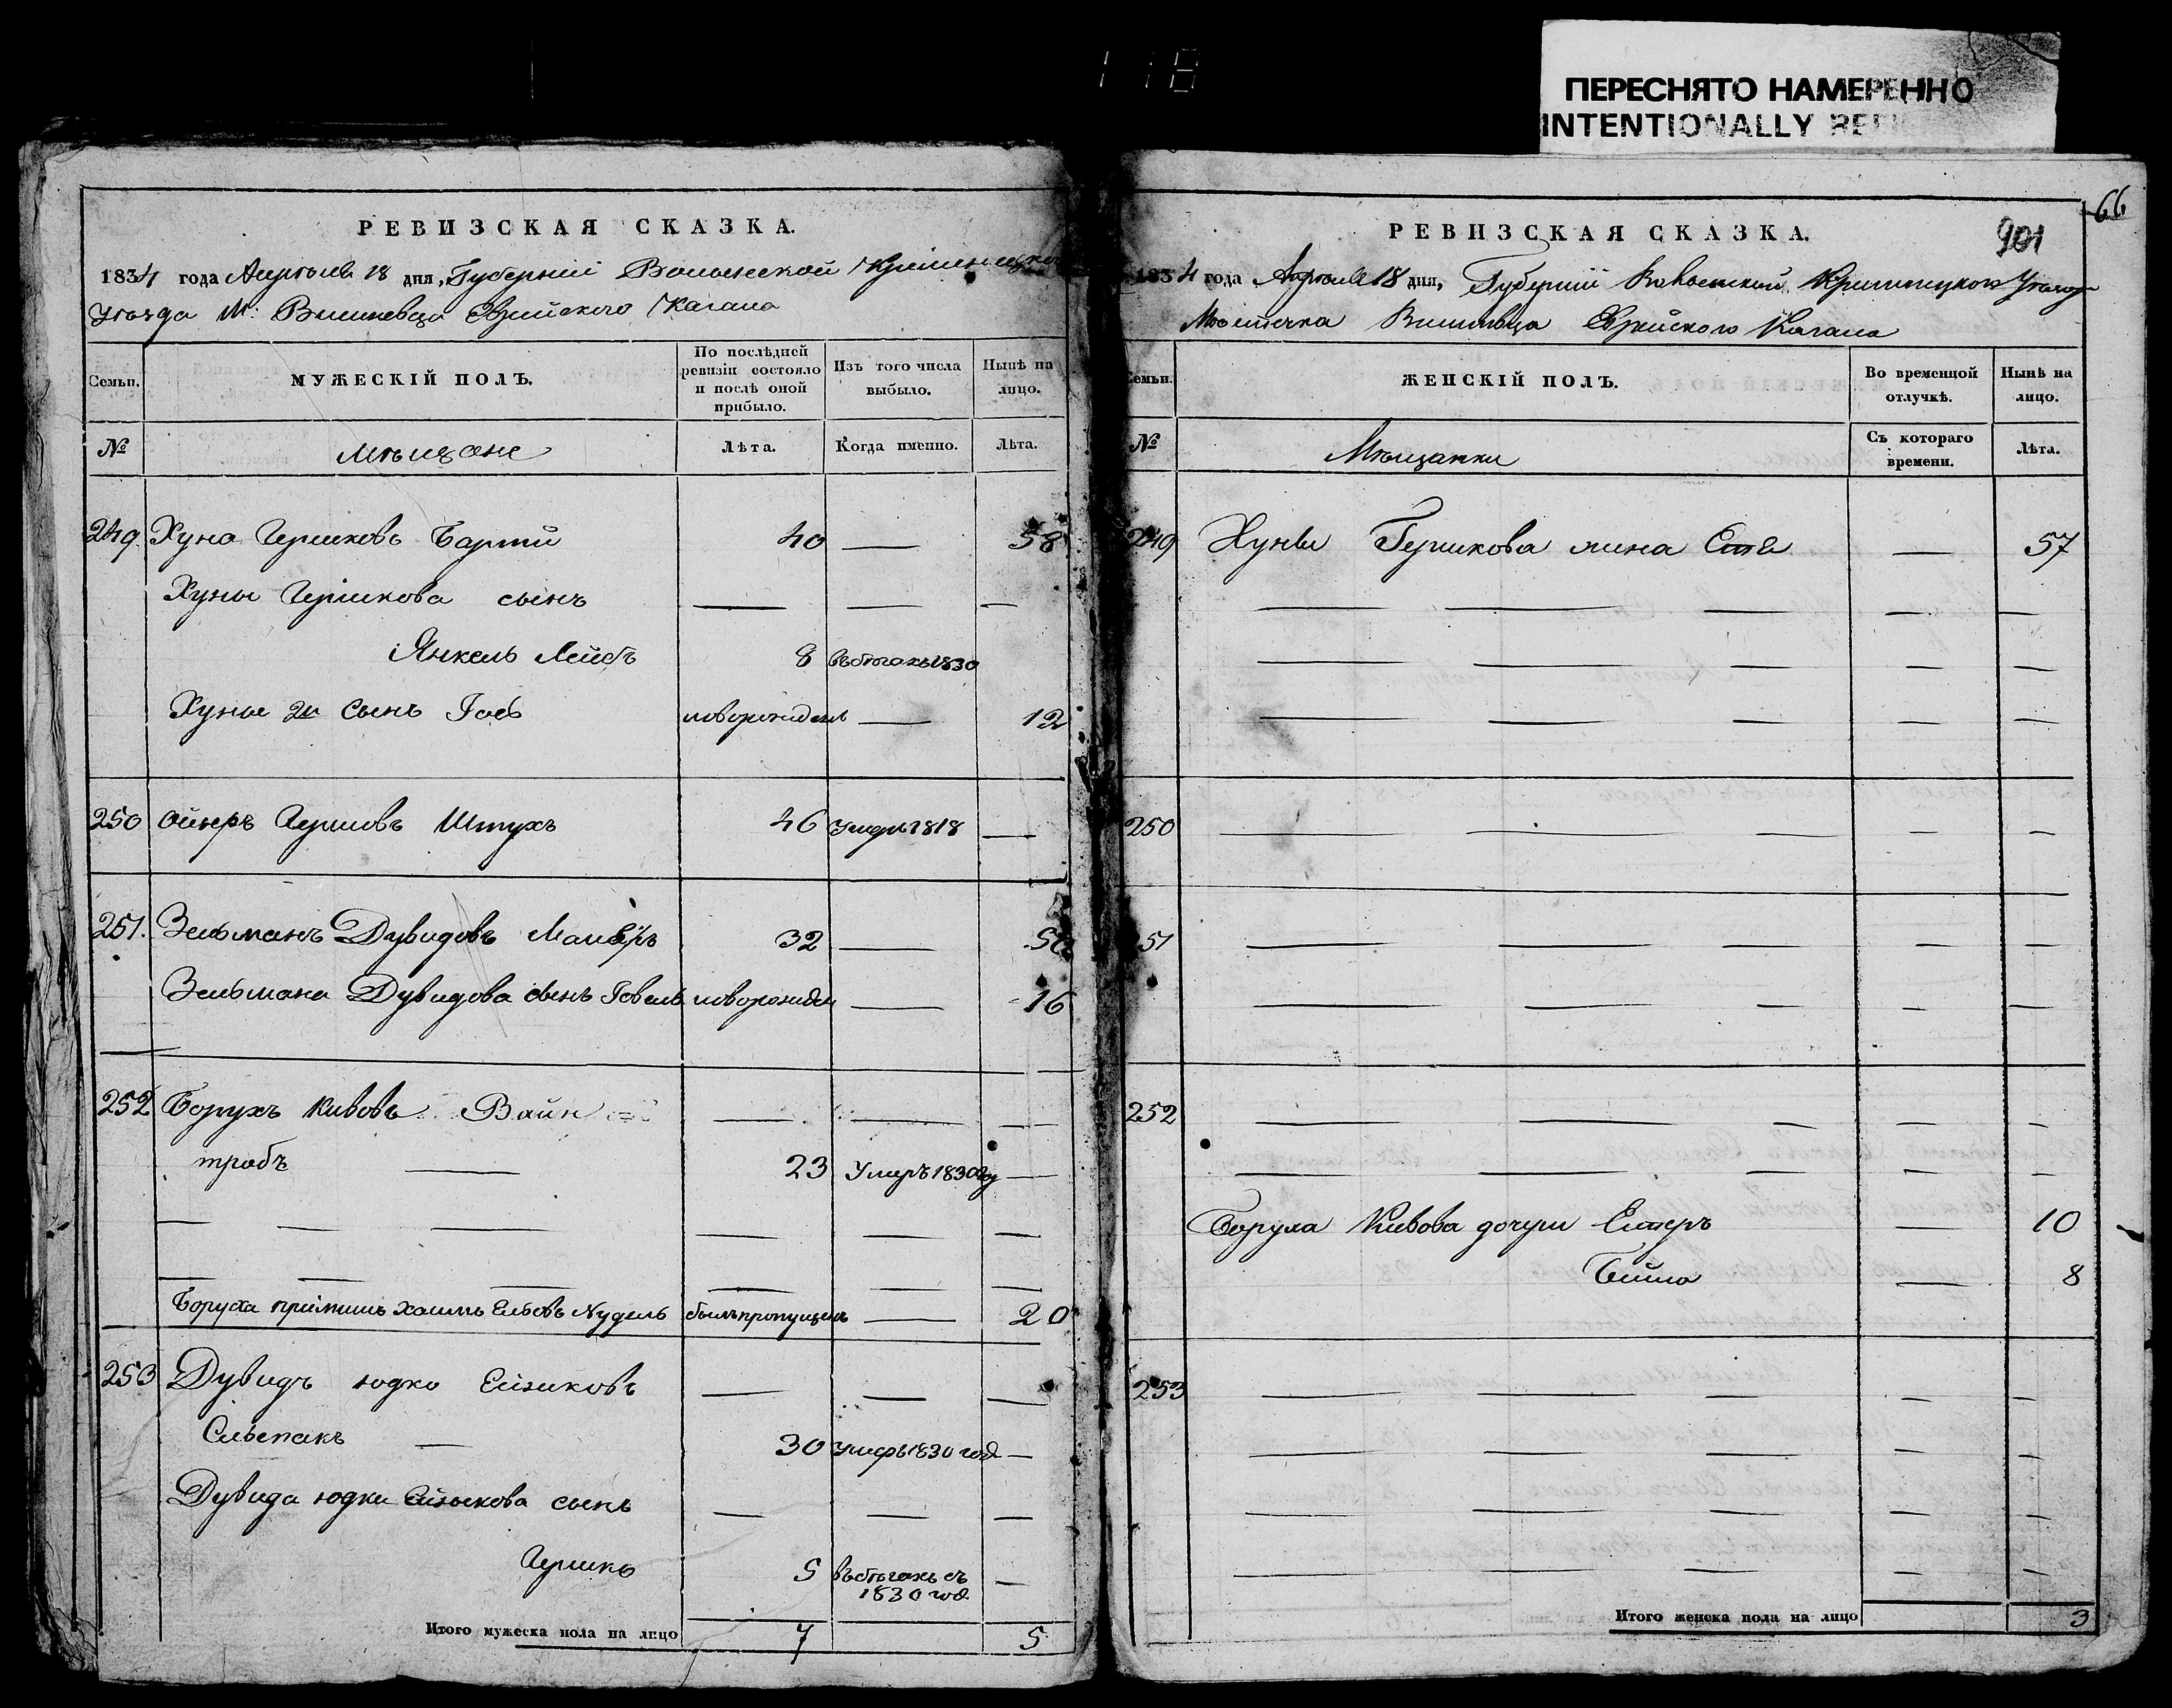 118
ПЕРЕСНЯТО НАМЕРЕННО
INTENTIONALLY
РЕВИЗСКАЯ СКАЗКА.
1834 года Апреля 18 дня, Губернии Волынской Кременецкого
Уезда М: Вишневца Еврейского Кагала
Семьи.
МУЖЕСКІЙ ПОЛЪ.
По послѣдней ревизіи состояло и послѣ оной прибыло.
Изъ того числа выбыло.
Нынѣ на лицо.
№
Мѣщане
Лѣта.
Когда именно.
Лѣта.
249 Хуна Гершковъ 40 — 58
Хуны Гершкова сынъ — — —
Янкель Лейбъ 8 въ бѣгахъ 1830
Хуны 2й сынъ новорожден — 12
250 Гершовъ Штухъ 46 Умеръ 1818 —
251. Зельманъ Дувидовъ 32 —
Зельмана Дувидова сынъ новорожден — 16
252 Борухъ Кивовъ Вайн — — —
трабъ — 23 Умеръ 1830 —
— — — — — —
— — — — — —
Боруха Хаимъ Нудель былъ пропущенъ — 20
253 Дувидъ Юдко Ейзиковъ — — —
— 30 Умеръ 1830 год —
Дувида Юдки Ейзыкова сынъ — — —
Гершко 5 въ бѣгахъ съ —
1830 год
Итого мужеска пола на лицо 7 5
66
901
РЕВИЗСКАЯ СКАЗКА.
1834 года Апреля 18 дня, Губернии Волынской Кременецкого Уезда
Местечка Вишневца Еврейского Кагала
Семьи.
ЖЕНСКІЙ ПОЛЪ.
Во временной отлучкѣ.
Нынѣ на лицо.
№
Мѣщанки
Съ котораго времени.
Лѣта.
249 Хуны Гершкова жена — 57
— — — — —
— — — — —
— — — — —
250 — — — — —
51 — — — — —
— — — — —
252 — — — — —
— — — — —
Боруха Кивова дочери Естеръ — 10
Бейла — 8
253 — — — — —
— — — — —
— — — — —
— — — — —
Итого женска пола на лицо 3